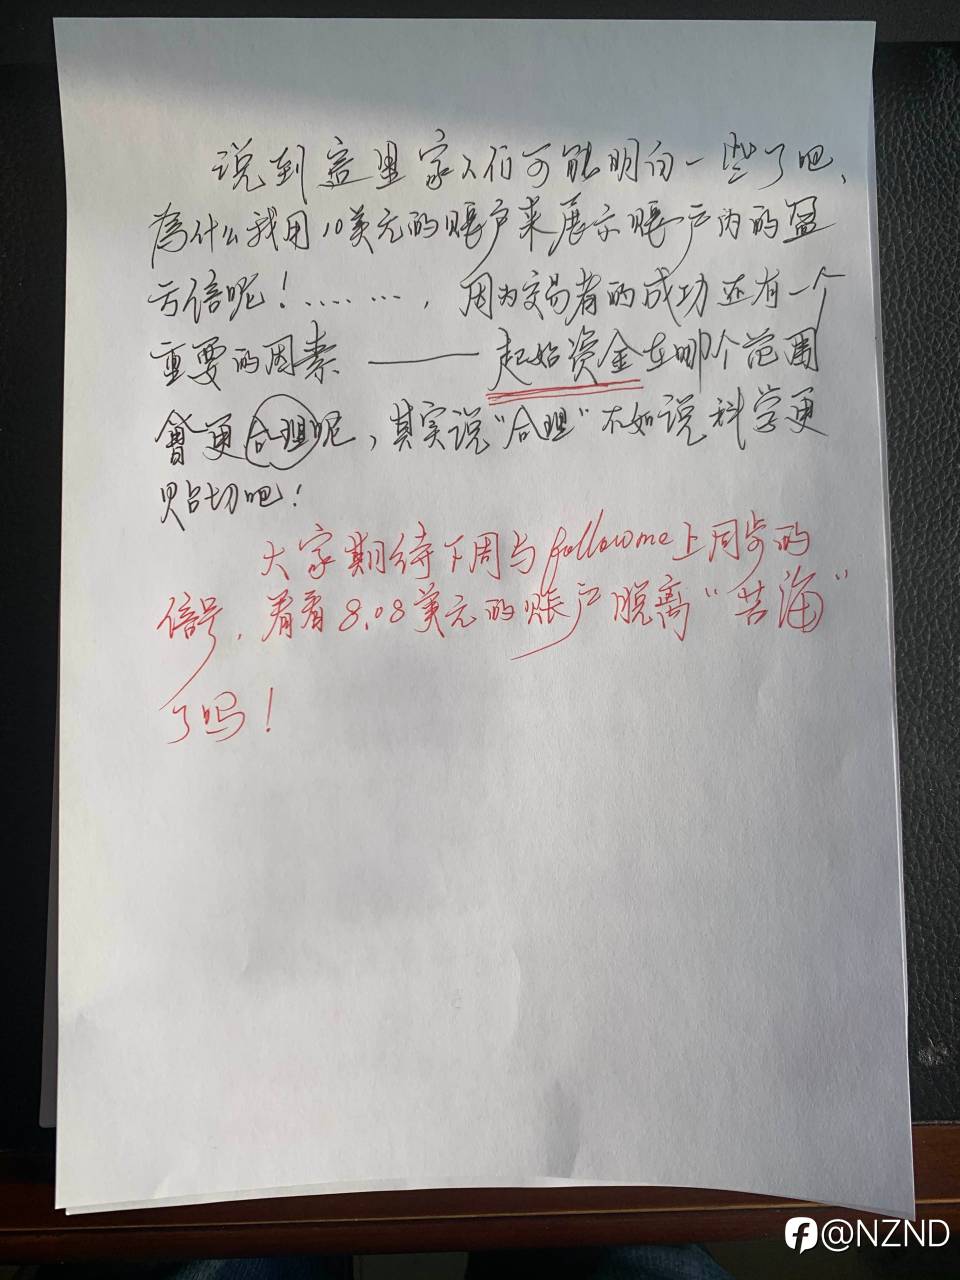 说到这里家人们可能明白一些了吧，
為什么我用10美元的賬户来展示賬户内的盈
亏倍呢！………，因为交易者的成功还有一个
重要的因素 —— 起始资金在哪个范围
會更合理呢，其实说“合理”不如说科学更
贴切吧！
大家期待下周与followme上同步的
信号，看看8.08美元的账户脱离“苦海”
了吗！
@NZND